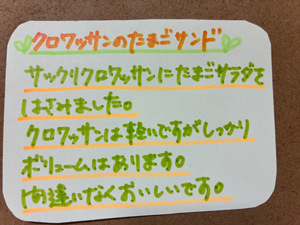 クロワッサンのたまごサンド
サックリクロワッサンにたまごサラダを
はさみました。
クロワッサンは軽いですがしっかり
ボリュームはあります。
間違いなくおいしいです。